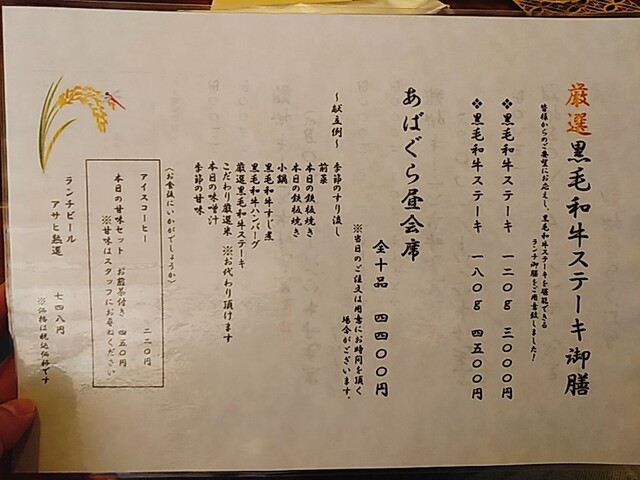 厳選黒毛和牛ステーキ御膳
皆様からのご要望にお応えし、黒毛和牛ステーキを堪能できる
ランチ御膳をご用意致しました！
❖黒毛和牛ステーキ 一二〇g 三〇〇〇円
❖黒毛和牛ステーキ 一八〇g 四五〇〇円
あばぐら昼会席
全十品 四四〇〇円
※当日のご注文は用意にお時間を頂く
場合がございます。
～献立例～
季節のすり流し
前菜
本日の鉄板焼き
本日の鉄板焼き
小鍋
黒毛和牛すじ煮
黒毛和牛ハンバーグ
厳選黒毛和牛ステーキ
こだわり厳選米 ※お代わり頂けます
本日の味噌汁
季節の甘味
（お食後にいかがでしょうか）
アイスコーヒー 二二〇円
本日の甘味セット お煎茶付き 四五〇円
※甘味はスタッフにお尋ねください
ランチビール
アサヒ熟選 七四八円
※価格は税込価格です